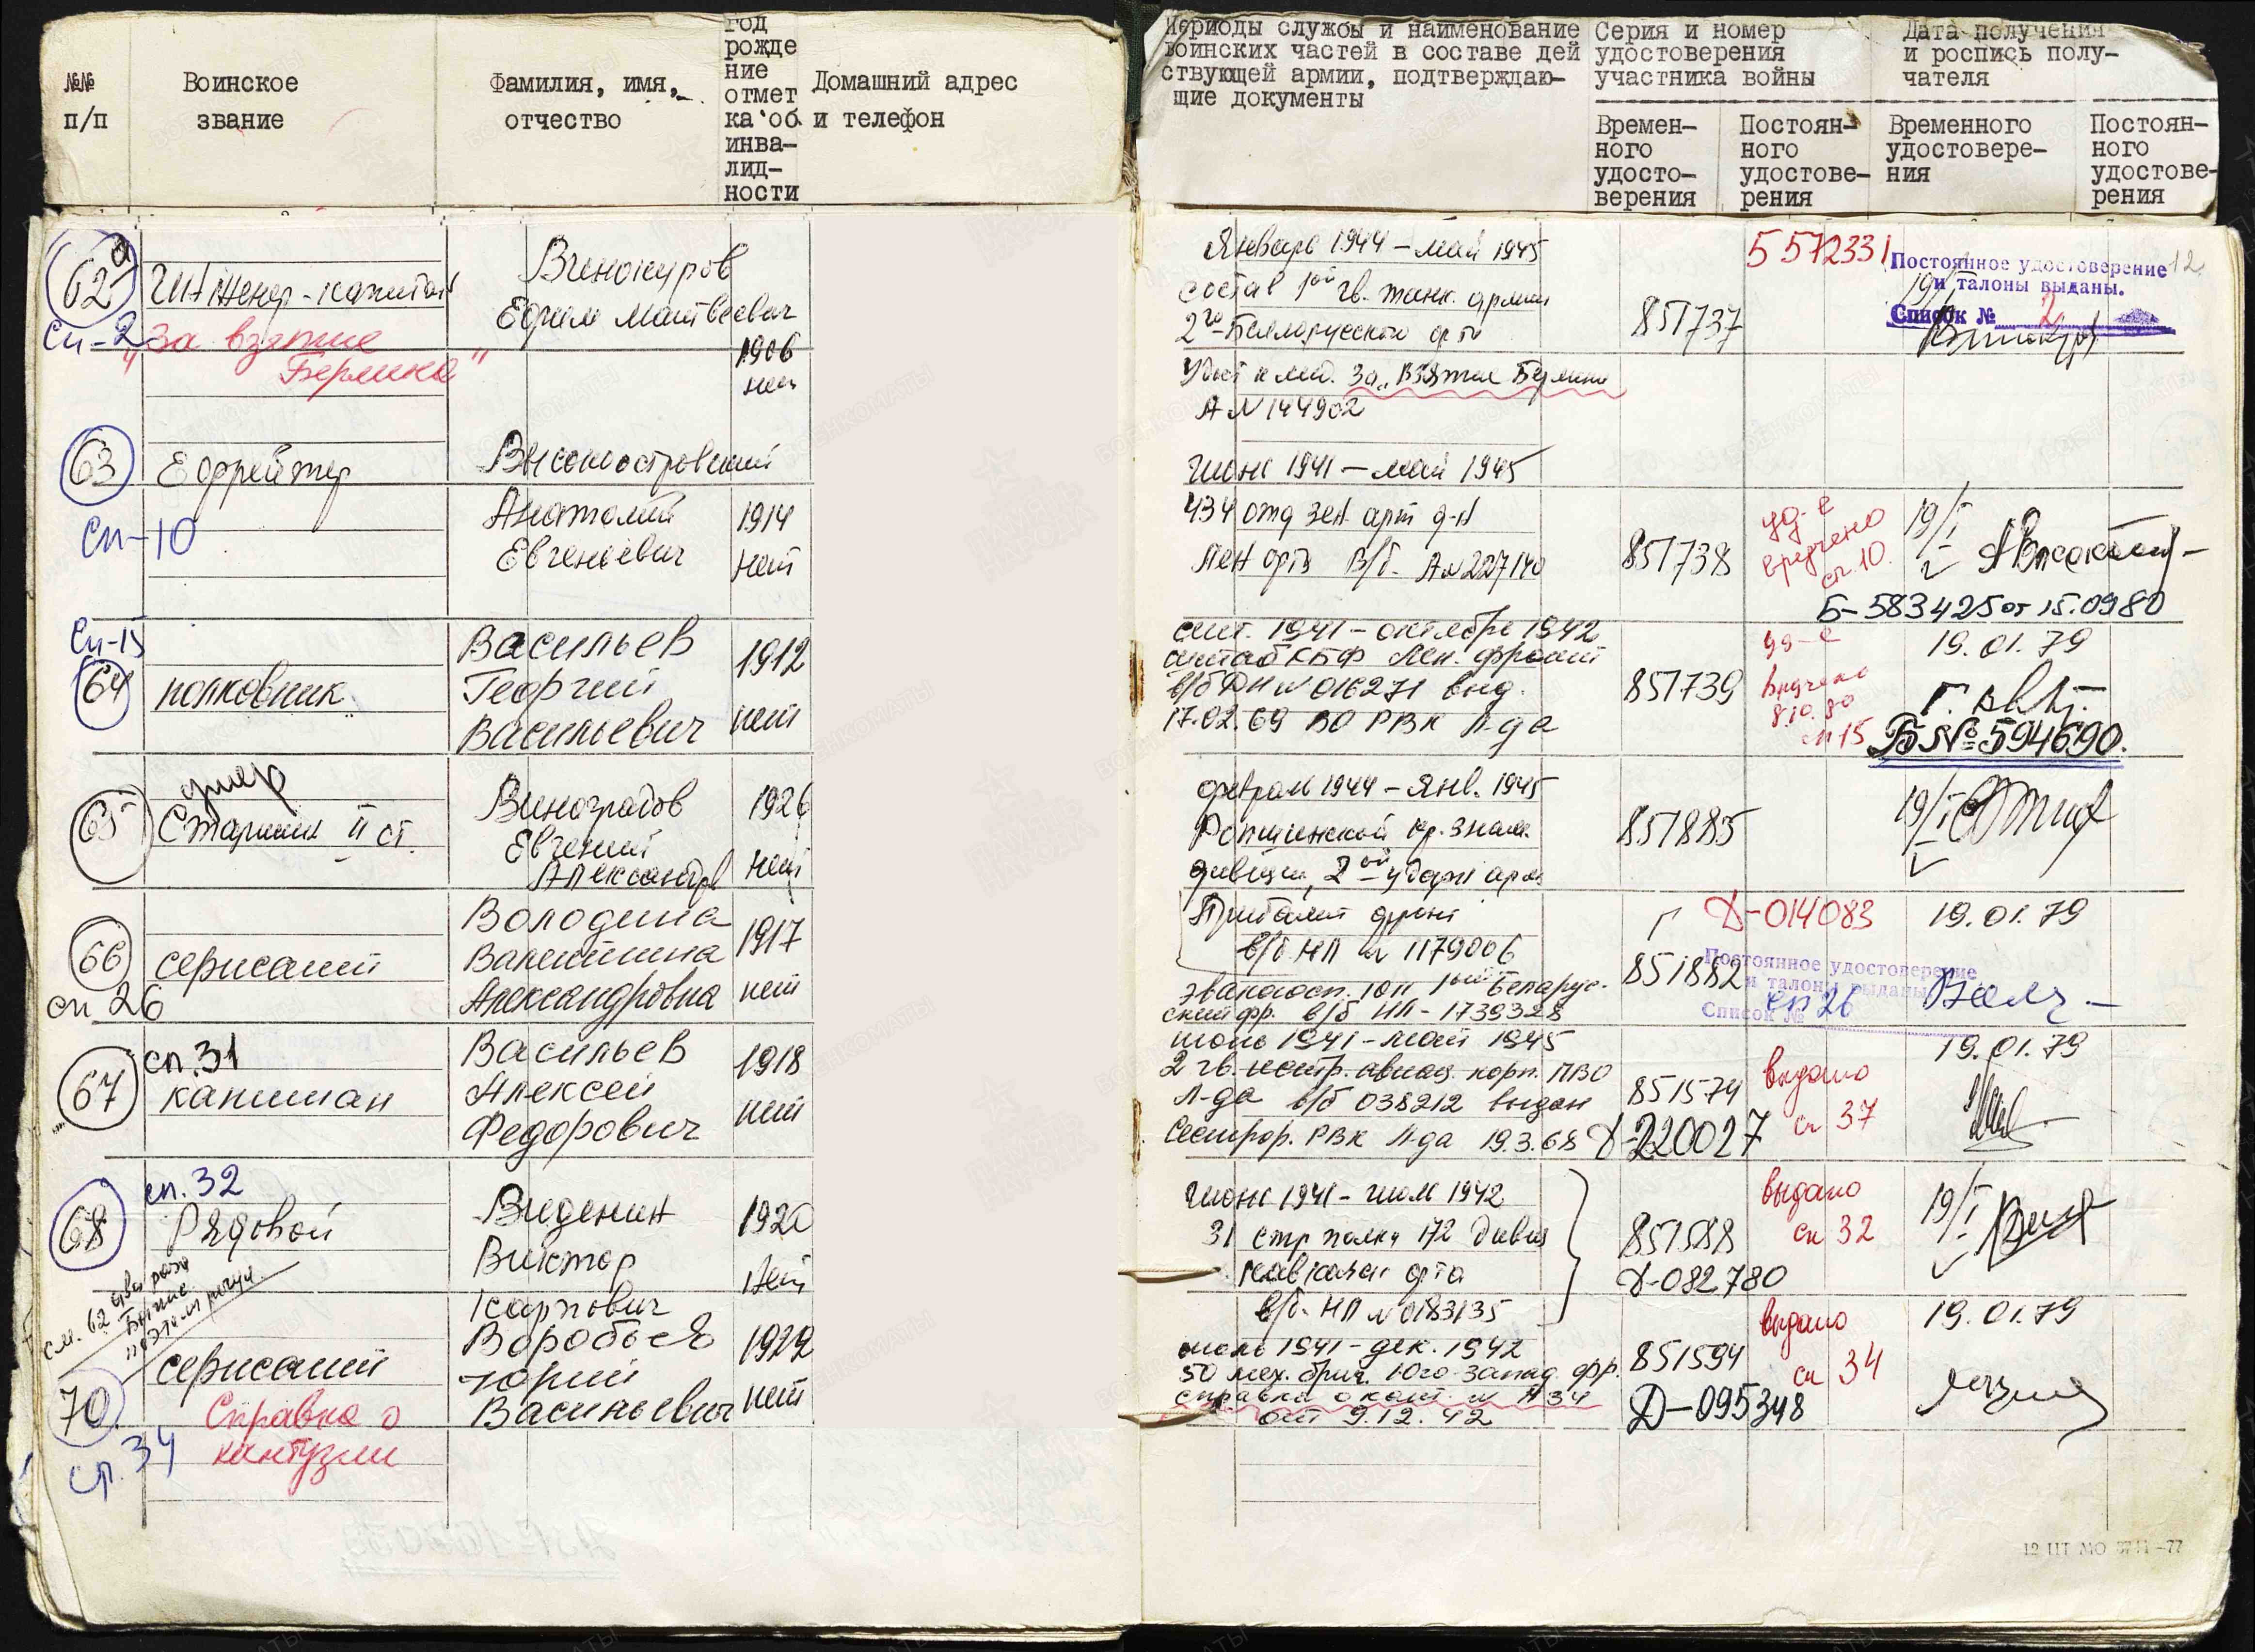 №№ п/п
Воинское звание
Фамилия, имя, отчество
год рожде
ние
отмет
ка об
инва-
лид-
ности
Домашний адрес
и телефон
Периоды службы и наименование
воинских частей в составе дей
ствующей армии, подтверждаю-
щие документы
Серия и номер
удостоверения
участника войны
Времен-
ного
удосто-
верения
Постоян-
ного
удостове-
рения
Дата получения
и роспись полу-
чателя
Временного
удостовере-
ния
Постоян-
ного
удостове-
рения
12
62а
Сп-2
Инженер-капитан
"За взятие
Берлина"
Винокуров
Ефрем Матвеевич
1906
нет
Январь 1944 – май 1945
состав 1ой гв. танк. армии
2го-Белорусского фр-та
Удост к мед. За "Взятие Берлина
А N 144902
851737
5 572331
Постоянное удостоверение
и талоны выданы.
Список № 2
19/I
63
Сп-10
Ефрейтор
Высокоостровский
Анатолий
Евгеньевич
1914
нет
Июнь 1941 – май 1945
434 отд зен. арт д-н
Лен фр-та В/б. А N 227140
851738
уд-е
вручено
сп.10.
19/I
Б-583425 от 15.0980
Сп-15
64
полковник
Васильев
Георгий
Васильевич
1912
нет
сент. 1941 – октябрь 1942
штаб КБФ Лен. фронт
в/б ДН N 016271 выд.
17.02.69 ВО РВК Л-да
851739
уд-е
вручено
8.10.80
сп 15
19.01.79
Б № 594690.
65
умер
Старшина II ст.
Виноградов
Евгений
Александр
1926
нет
феврал 1944 – Янв. 1945
Ропшинской кр. знам.
дивизии, 2ой ударн арм
Прибалт фронт
в/б НП N 1179006
851885
19/I
66
сп 26
сержант
Володина
Валентина
Александровна
1917
нет
эвакогосп. 1011 1ый Беларус-
ский фр. в/б НП-1739328
851882
Д-014083
Постоянное удостоверение
и талоны выданы
Список № сп 26
19.01.79
67
сп.31
капитан
Васильев
Алексей
Федорович
1918
нет
июнь 1941 – май 1945
2 гв. истр. авиац. корп. ПВО
Л-да в/б 038212 выдан
Сестрор. РВК Л-да 19.3.68
851574
Д-220027
выдано
сп 37
19.01.79
68
сп. 32
Рядовой
Виденин
Виктор
Карпович
1920
нет
Июнь 1941 – июль 1942
31 стр полка 172 дивиз
Кавказск фр-та
в/б. НП N 0183135
851588
Д-082780
выдано
сп 32
19/I
см. 62 два раза
70
сп. 34
сержант
Справка о
контузии
Воробьев
Юрий
Васильевич
1922
нет
июль 1941 – дек. 1942
50 мех. бриг. Юго Запад. фр.
справка о конт. N А34
от 9.12.42
851594
Д-095348
выдано
сп 34
19.01.79
12 ЦТ МО 3741-77